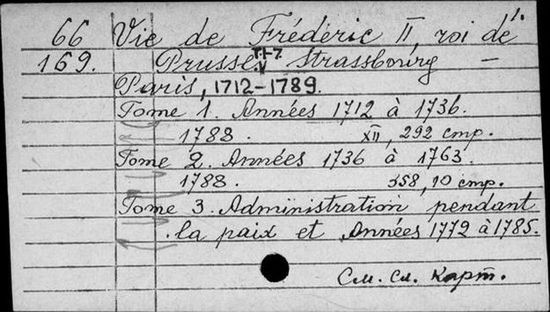 1.
66 Vie de Frédéric II roi de
169. Prusse. T. 1-7. Strassbourg —
Paris, 1712-1789.
Tome 1. Années 1712 à 1736.
1788. XII, 292 стр.
Tome 2. Années 1736 à 1763.
1788. 358, 10 стр.
Tome 3. Administration pendant
la paix et Années 1772 à 1785.
См. сл. карт.